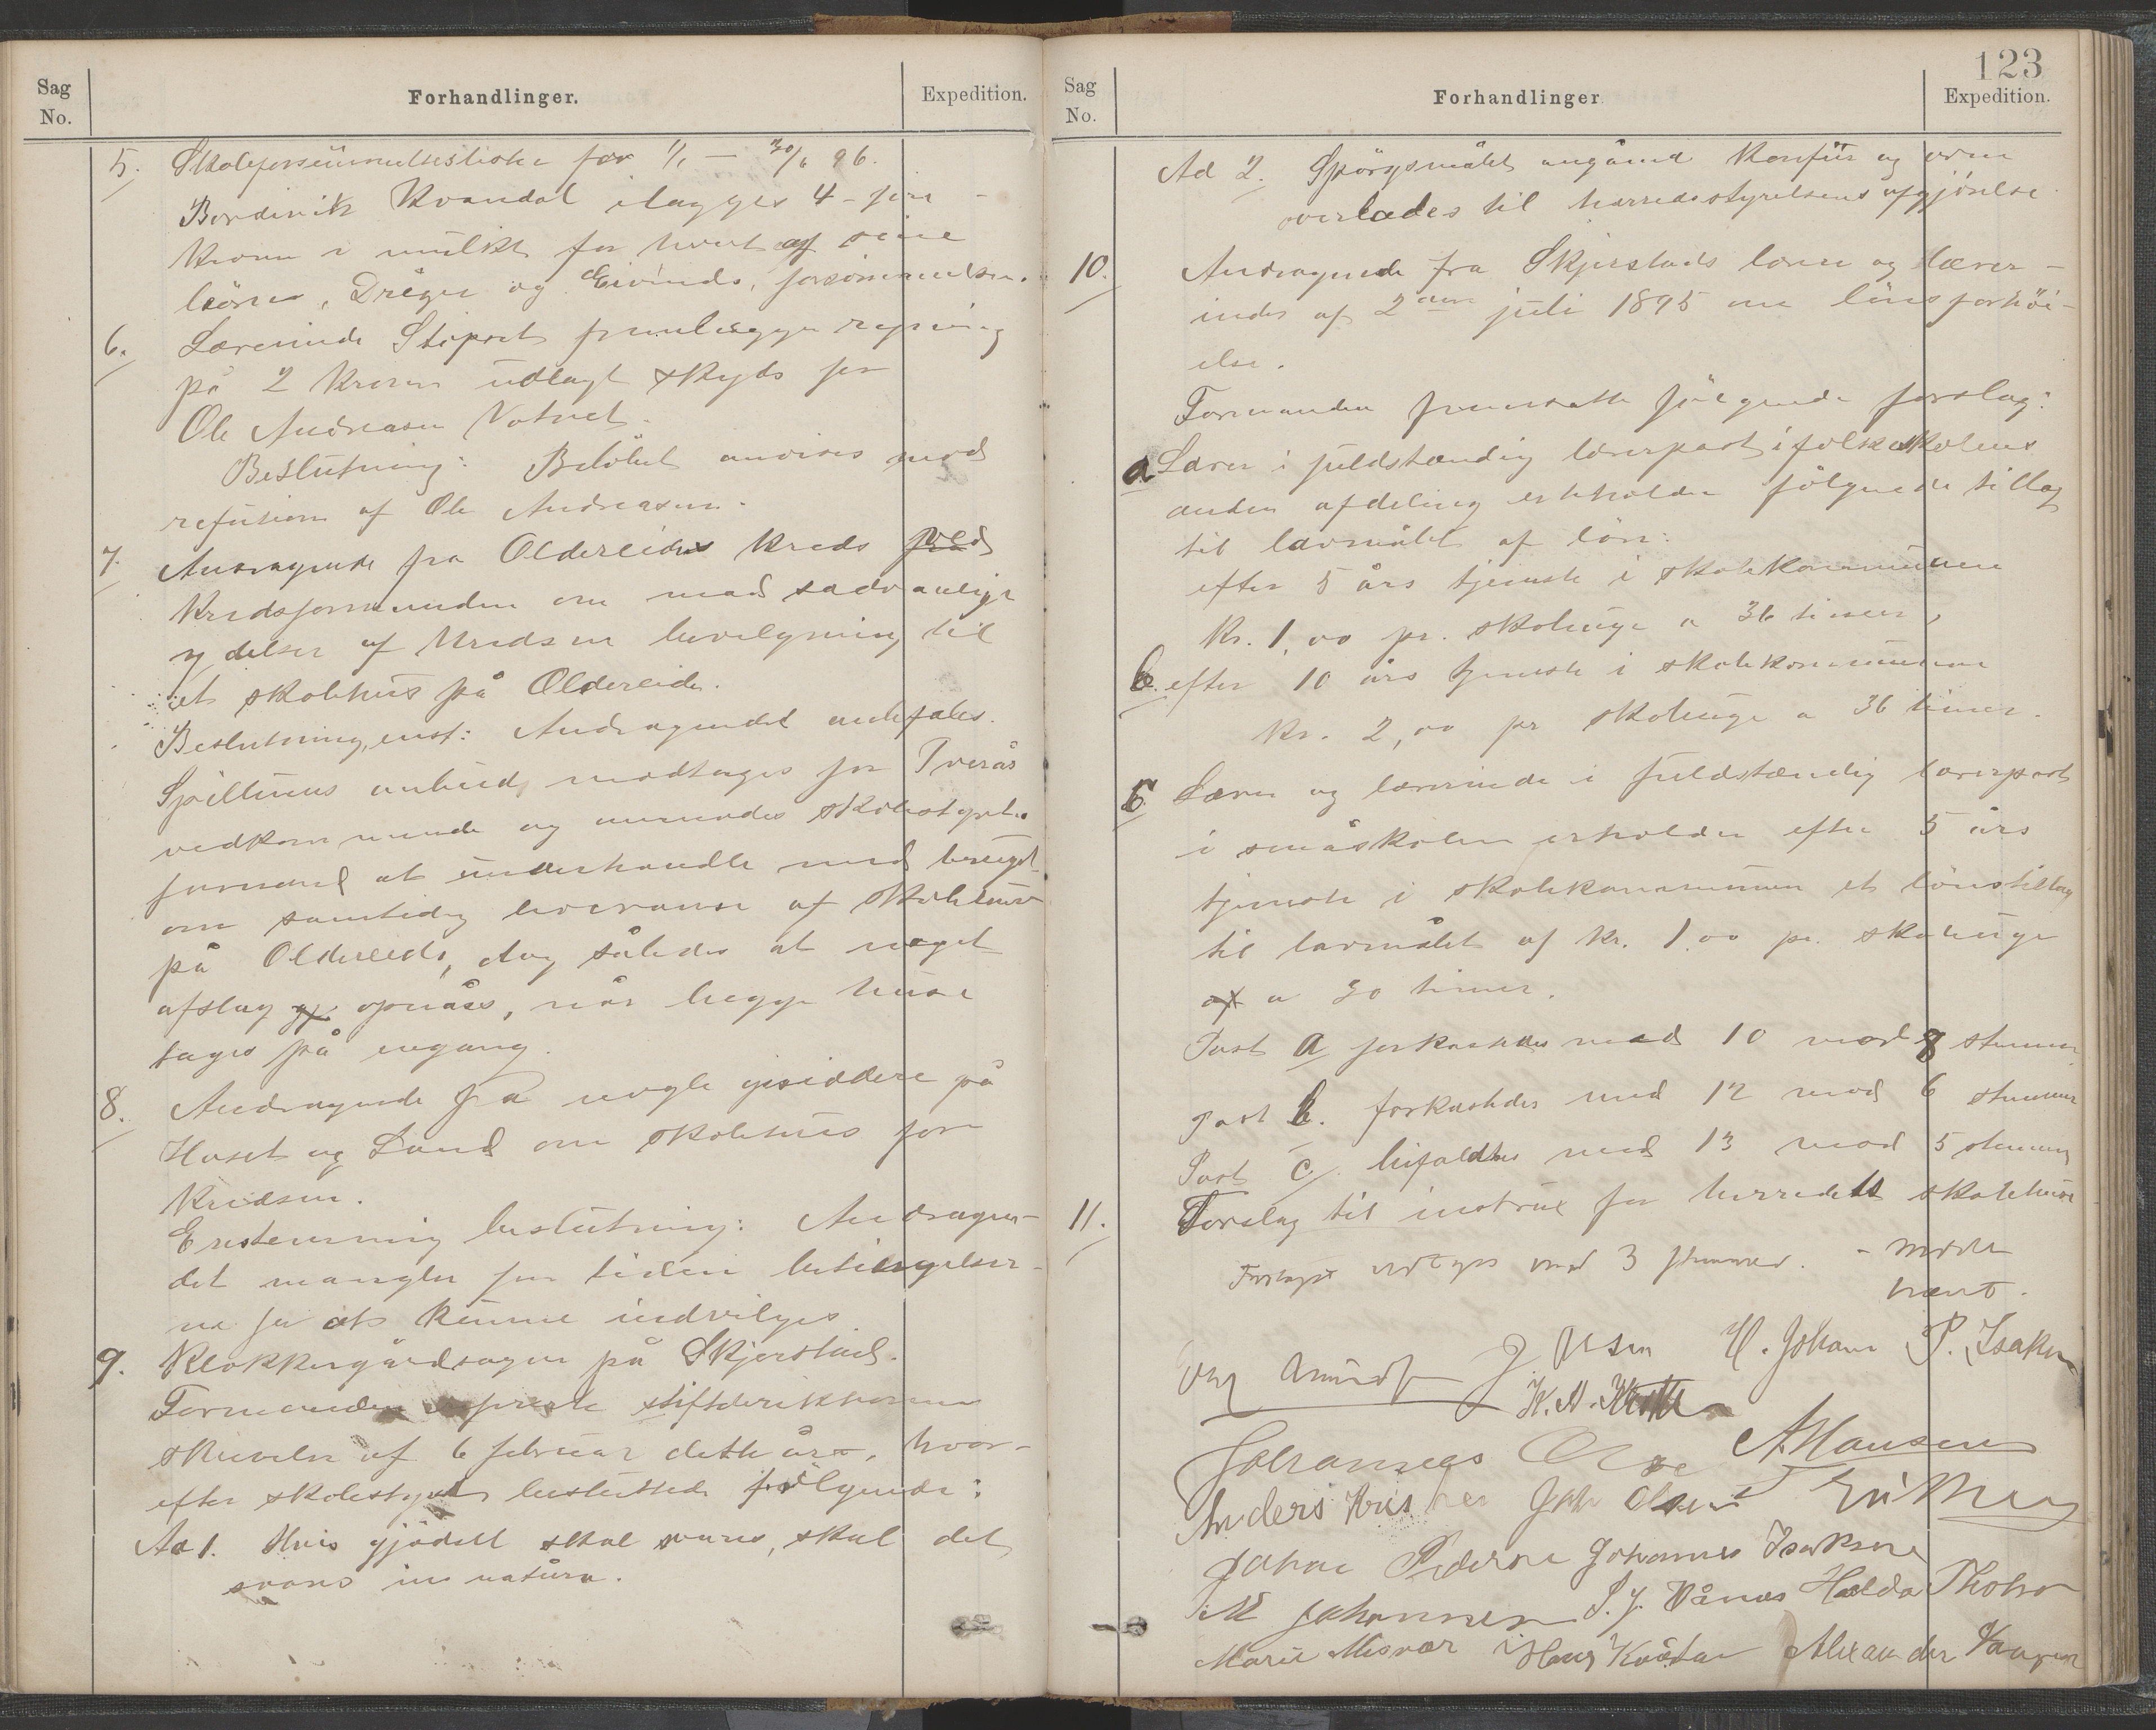 Sag
No.
Forhandlinger.
Expedition.
5. Skoleforsømmelsesliste for 1/1 – 30/6 96.
Kvandal ilægges 4 - fire -
kroner i mulkt for hvert af sine
børns, og Eivinds, forsømmelser.
6. Lærerinde fremlægger regning
på 2 kroner udlagt skyds for
Ole Andreasen Vatnet.
Beslutning: Beløbet anvises mod
refusion af Ole Andreasen.
7. Andragende fra Oldereidets kreds ved
kredsformanden om med sædvanlige
ydelser af kredsen bevilgning til
et skolehus på Oldereide.
Beslutning, enst: Andragendet anbefales.
anbud modtages for Tverås
vedkommende og anmodes skolestyrets
formand at underhandle med
om samtidig leverance af skolehus
på Oldereide, dog således at noget
afslag opnåes, når begge huse
tages på engang.
8. Andragende fra nogle opsiddere på
og Lund om skolehus for
kredsen.
Enstemmig beslutning: Andragen-
det mangler for tiden betingelser-
ne for at kunne indvilges
9. Klokkergårdsagen på Skjerstad.
Formanden stiftsdirektionens
skrivelse af 6 februar dette år, hvor-
efter skolestyret besluttede følgende:
Ad 1. Hvis gjødsel skal svares, skal det
svares in natura.
123
Sag
No.
Forhandlinger
Expedition.
Ad 2. Spørgsmålet angående og
overlades til herredsstyrelsens afgjørelse
10. Andragende fra Skjerstads lærere og lærer-
inder af 2den juli 1895 om lønsforhøi-
else.
Formanden fremsatte følgende forslag:
a Lærer i fuldstændig lærerpost i folkeskolens
anden afdeling erholder følgende tillæg
til lavmålet af løn:
efter 5 års tjeneste i skolekommunen
Kr. 1,00 pr. skoleuge a 36 timer,
b. efter 10 års tjeneste i skolekommunen
Kr. 2,00 pr skoleuge a 36 timer.
c Lærer og lærerinde i fuldstændig lærerpost
i småskolen erholder efter 5 års
tjeneste i skolekommunen et lønstillæg
til lavmålet af kr. 1,00 pr. skoleuge
a 30 timer.
Post a forkastedes med 10 mod 8 stemmer
Post b. forkastedes med 12 mod 6 stemmer
Post c. bifaldtes med 13 mod 5 stemmer
11. Forslag til instrux for herredets skolehuse
Forslaget med 3 stemmer. - Mødet
hævet.
J. Olsen H. Johans P. Isaksen
K. A.
Johannes Olsen A. Hansen
Anders Joh Olsen
Johan Pedersen Johannes Isaksen
M Johannesen P. J. Vånes Hulda
Marie Misvær Hans Alexander